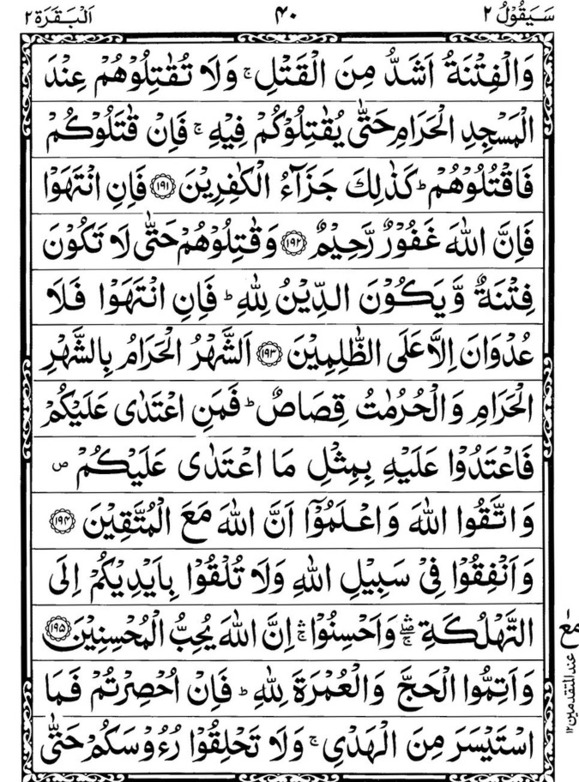 سَيَقُوْلُ ٢ ٤٠ اَلْبَقَرَة ٢
وَالْفِتْنَةُ اَشَدُّ مِنَ الْقَتْلِ ۚ وَلَا تُقٰتِلُوْهُمْ عِنْدَ
الْمَسْجِدِ الْحَرَامِ حَتّٰى يُقٰتِلُوْكُمْ فِيْهِ ۚ فَاِنْ قٰتَلُوْكُمْ
فَاقْتُلُوْهُمْ ؕ كَذٰلِكَ جَزَآءُ الْكٰفِرِيْنَ ۝١٩١ فَاِنِ انْتَهَوْا
فَاِنَّ اللّٰهَ غَفُوْرٌ رَّحِيْمٌ ۝١٩٢ وَقٰتِلُوْهُمْ حَتّٰى لَا تَكُوْنَ
فِتْنَةٌ وَّيَكُوْنَ الدِّيْنُ لِلّٰهِ ؕ فَاِنِ انْتَهَوْا فَلَا
عُدْوَانَ اِلَّا عَلَى الظّٰلِمِيْنَ ۝١٩٣ اَلشَّهْرُ الْحَرَامُ بِالشَّهْرِ
الْحَرَامِ وَالْحُرُمٰتُ قِصَاصٌ ؕ فَمَنِ اعْتَدٰى عَلَيْكُمْ
فَاعْتَدُوْا عَلَيْهِ بِمِثْلِ مَا اعْتَدٰى عَلَيْكُمْ ص
وَاتَّقُوا اللّٰهَ وَاعْلَمُوْٓا اَنَّ اللّٰهَ مَعَ الْمُتَّقِيْنَ ۝١٩٤
وَاَنْفِقُوْا فِيْ سَبِيْلِ اللّٰهِ وَلَا تُلْقُوْا بِاَيْدِيْكُمْ اِلَى
التَّهْلُكَةِ ۛۖ وَاَحْسِنُوْا ۛۚ اِنَّ اللّٰهَ يُحِبُّ الْمُحْسِنِيْنَ ۝١٩٥
مع
عند المتقدمين ١٢
وَاَتِمُّوا الْحَجَّ وَالْعُمْرَةَ لِلّٰهِ ؕ فَاِنْ اُحْصِرْتُمْ فَمَا
اسْتَيْسَرَ مِنَ الْهَدْيِ ۚ وَلَا تَحْلِقُوْا رُءُوْسَكُمْ حَتّٰى